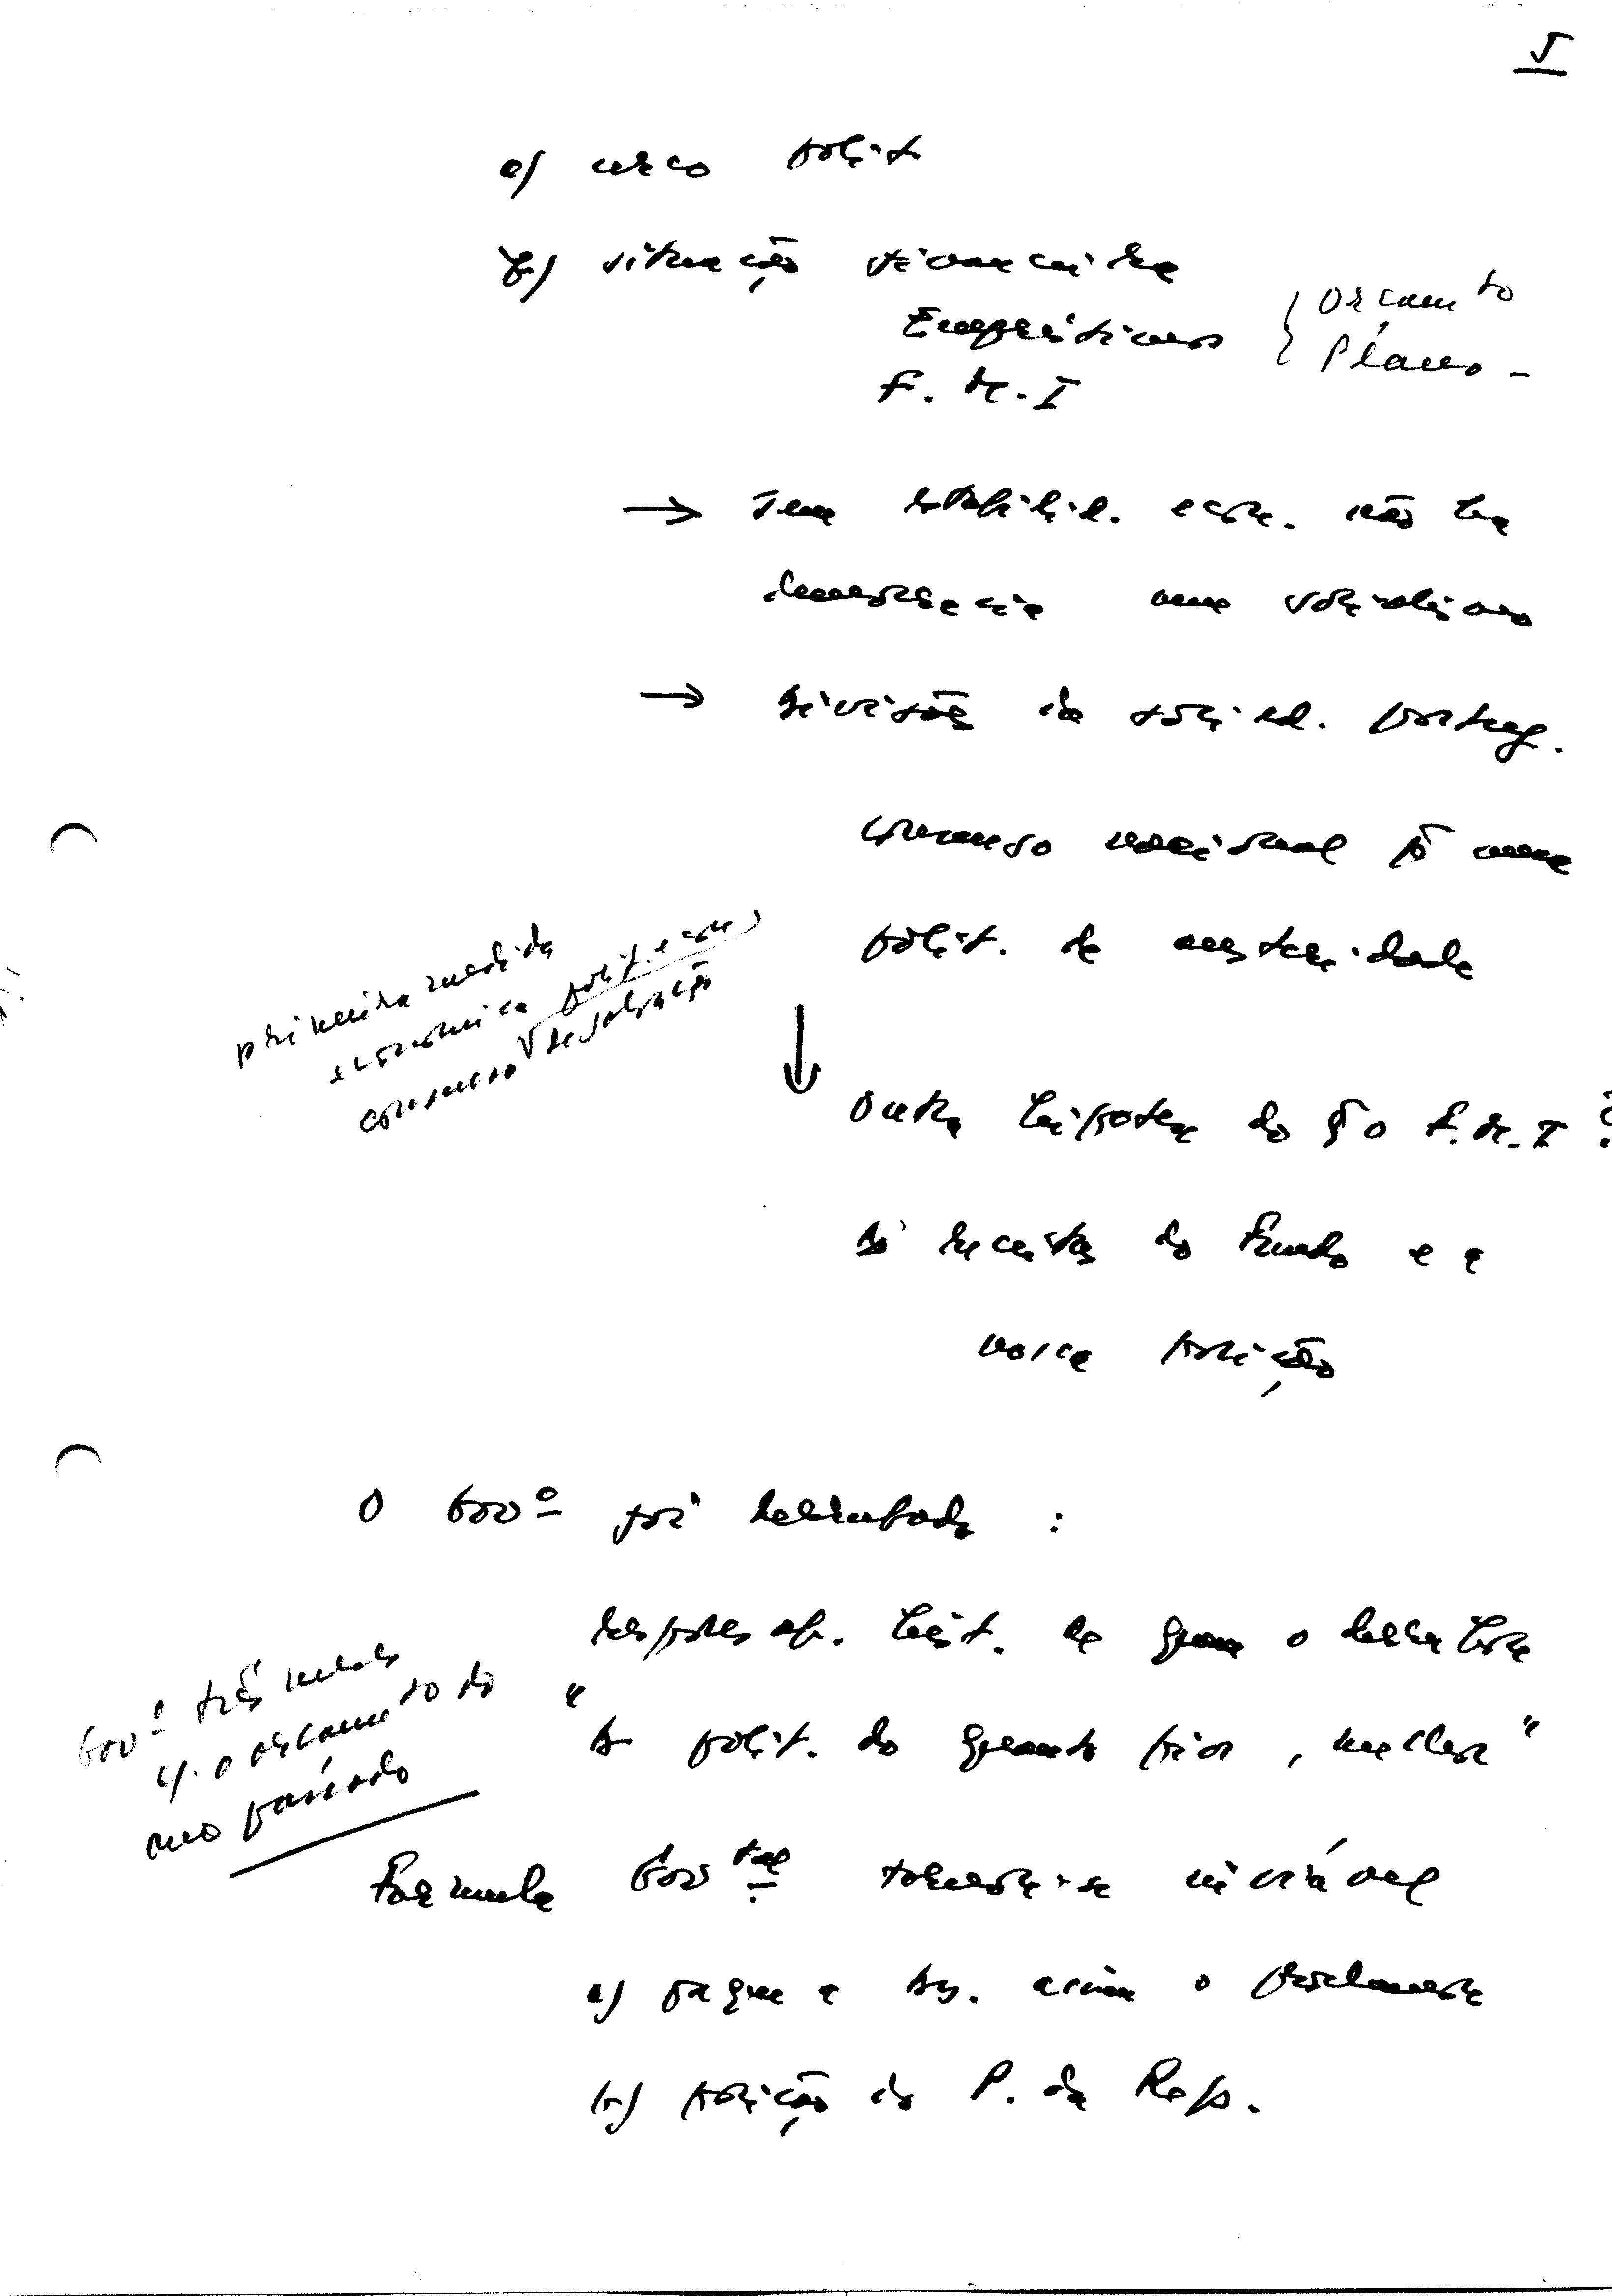 5
a) cerco polit
b) situação financeira
Empréstimos { Orçamto
F. M. I Plano -
→ sem estabilid. econ. não há
democracia nem socialismo
→ divisão da socied. portug.
consenso nacional pª uma
polit. de austeridade
primeira medida
económica polit. e econ
consenso de salvação
↓
Outra hipótese do q o F. M. I ?
As receitas do Fundo e a
nossa posição
O Govº foi derrubado :
responsab. hist. de quem o derrubou
"A polit. do quanto pior, melhor"
Govº três meses
c/. o orçamento do
ano passado
Formula Gov tal tornou-se inviável
a) porque a Ass. assim o proclamou
b) posição do P. da Rep.